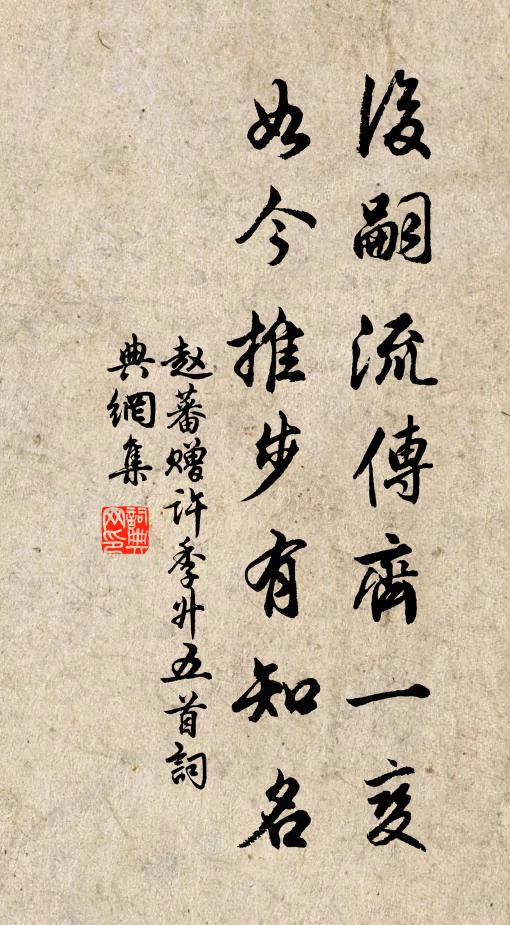 後嗣流傳齊一變
如今推步有知名
赵蕃赠許季升五首詞
典網集
詞典网印